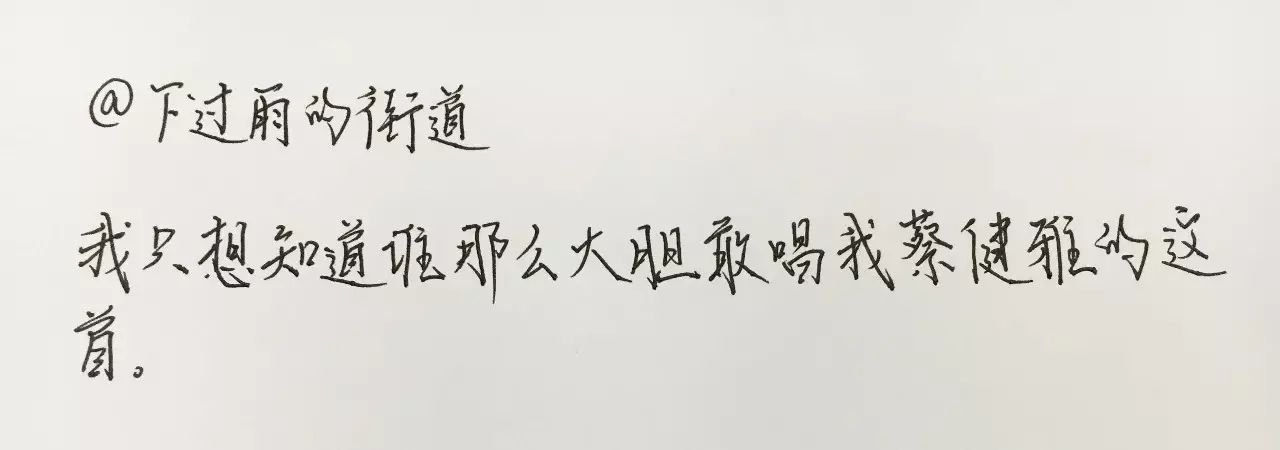 @下过雨的街道
我只想知道谁那么大胆敢唱我蔡健雅的这
首。